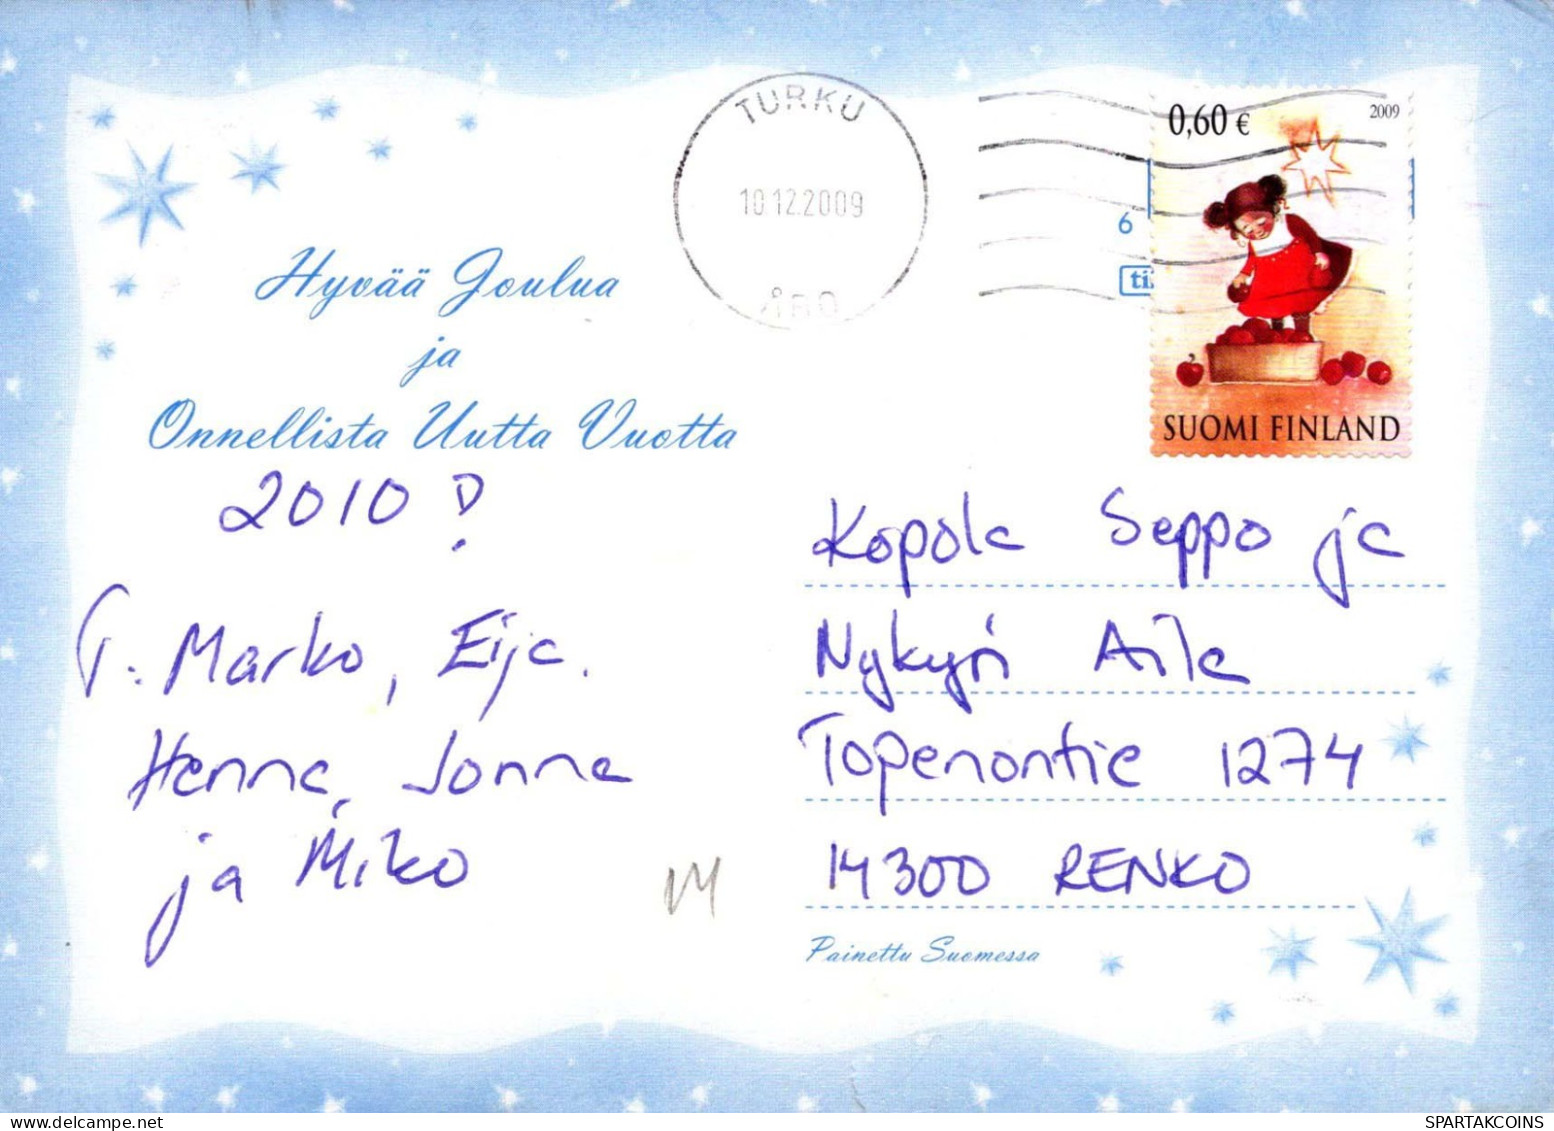 TURKU
10.12.2009
ÅBO
0,60 €
2009
6
SUOMI FINLAND
Hyvää Joulua
ja
Onnellista Uutta Vuotta
2010 !
T. Marko, Eija.
Henna, Jonna
ja Miko
Kopola Seppo ja
Nykyri Aila
Topenontie 1274
14300 RENKO
Painettu Suomessa
www.delcampe.net
SPARTAKCOINS